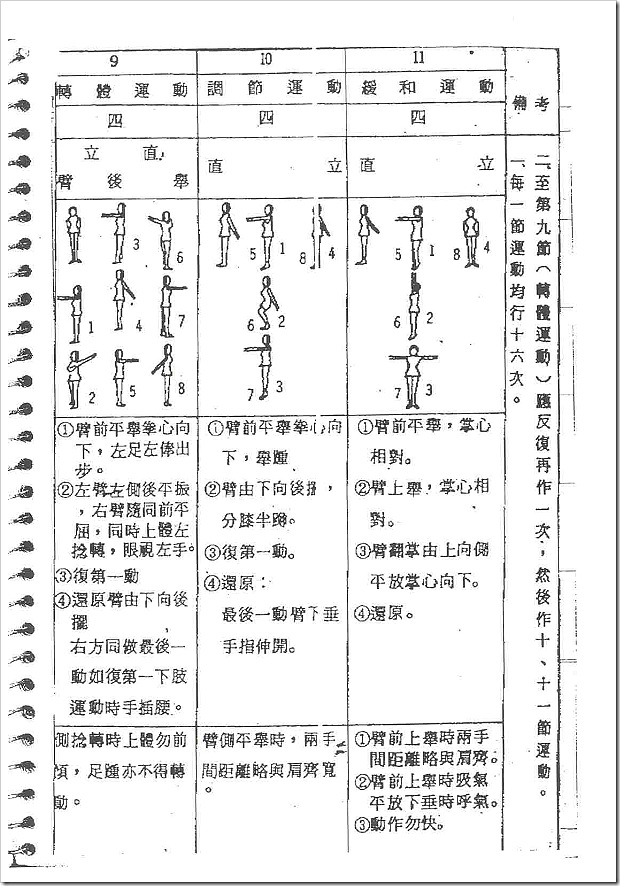 9
轉體運動
四
立直
臂後舉
3
6
1
4
7
2
5
8
①臂前平舉拳心向
下，左足左側出
步。
②左臂左側後平振
，右臂隨同前平
屈，同時上體左
捻轉，眼視左手。
③復第一動
④還原臂由下向後
擺，
右方同做最後一
動如復第一下肢
運動時手插腰。
側捻轉時上體勿前
傾，足踵亦不得轉
動。
10
調節運動
四
直立
5
1
8
4
6
2
7
3
①臂前平舉拳心向
下，舉踵
②臂由下向後擺，
分膝半蹲。
③復第一動。
④還原：
最後一動臂下垂
手指伸開。
臂側平舉時，兩手
間距離略與肩齊寬
。
11
緩和運動
四
直立
5
1
8
4
6
2
7
3
①臂前平舉，掌心
相對。
②臂上舉，掌心相
對。
③臂翻掌由上向側
平放掌心向下。
④還原。
①臂前上舉時兩手
間距離略與肩齊。
②臂前上舉時吸氣
平放下垂時呼氣。
③動作勿快。
備考
一、每一節運動均行十六次。
二、至第九節（轉體運動）應反復再作一次，然後作十、十一節運動。